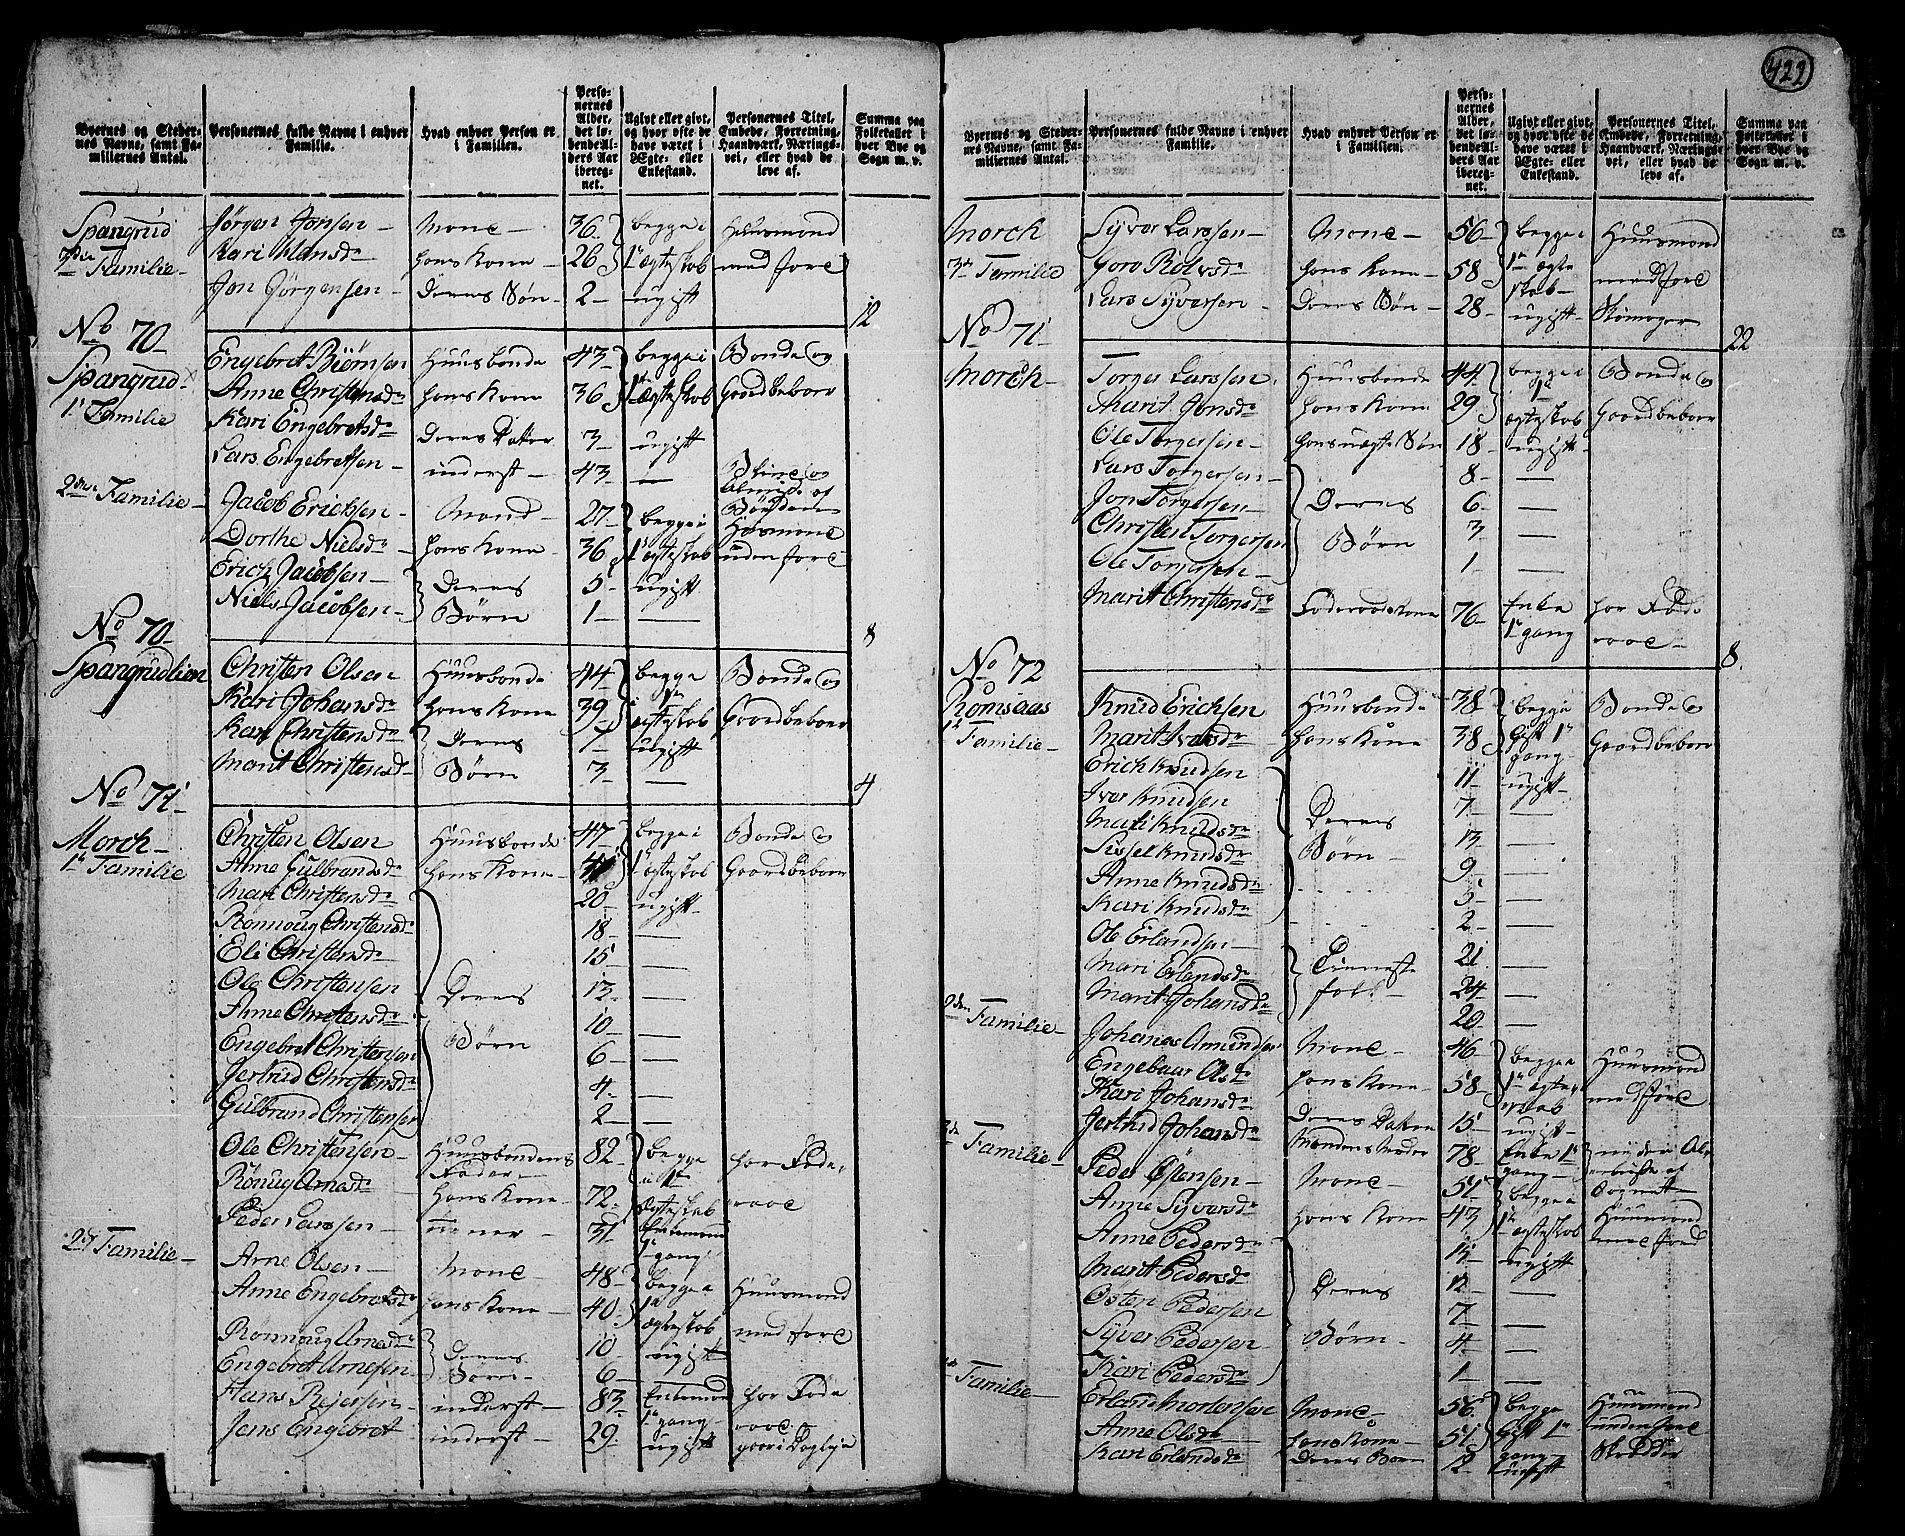 422
Byernes og Stedernes Navne, samt Familiernes Antal.
Personernes fulde Navne i enhver Familie.
Hvad enhver Person er i Familien.
Personernes Alder, det løbende Alders Aar iberegnet.
Ugivt eller givt, og hvor ofte de have været i Ægte- eller Enkestand.
Personernes Titel, Embede, Forretning, Haandværk, Næringsvei, eller hvad de leve af.
Summa paa Folketallet i hver Bye og Sogn m. v.
Spangrud Jørgen Jonsen - Mand - 36 begge i Huusmand
3die Familie - Kari Hansdr hans Kone - 26 1te ægteskab med jord
Jon Jørgensen - Deres Søn - 2 - ugift
12
No 70
Spangrud Engebret Biørnsen Huusbonde 43 begge i Bonde og
1te Familie Anne Christensdr hans Kone 36 1te Ægteskab Gaardbeboer
Kari Engebretsdr Deres Datter 3 - ugift
Lars Engebretsen - inderst - 43 -
2den Familie - Jacob Erichsen - Mand - 27 begge i Huusmand
Dorthe Nielsdr - hans Kone - 36 1te ægteskab uden jord
Erich Jacobsen - Deres 5 - ugift
Niels Jacobsen - Børn 1 -
8
No 70
Spangrudlien Christen Olsen Huusbonde 44 begge Bonde og
Kari Johansdr hans Kone 39 i 1te ægteskab Gaardbeboer
Kari Christensdr Deres 7 - ugift
Marit Christensdr Børn 3 -
4
No 71
Morch - Christen Olsen Huusbonde 47 begge i Bonde og
1te Familie Anne Gulbrandsdr hans Kone - 1te ægteskab Gaardbeboer
Mari Christensdr 20 - ugift
Rønnoug Christensdr 18 -
Eli Christensdr 15 -
Ole Christensen Deres 12 -
Anne Christensdr 10 -
Engebret Christensen Børn 6 -
Jertrud Christensdr 4 -
Gulbrand Christensen 2 -
Ole Christensen - Huusbondens Fader - 82 - begge har Føde
Rønnug Arnesdr hans Kone - 72 - Ægteskab raad
Peder Larssen - 31 - Enkemand 1te gang
2den Familie - Arne Olsen - Mand - 48 begge i Huusmand
Anne Engebretsdr hans Kone - 40 1te ægteskab med jord
Rønnoug Arnesdr Deres 10 - ugift
Engebret Arnesen Børn 6 -
Hans Reiersen - inderst - 83 - Enkemand 1te gang - har Føde raad
Jens Engebret inderst - 29 - ugift gaar i Dagleje
Byernes og Stedernes Navne, samt Familiernes Antal.
Personernes fulde Navne i enhver Familie.
Hvad enhver Person er i Familien.
Personernes Alder, det løbende Alders Aar iberegnet.
Ugivt eller givt, og hvor ofte de have været i Ægte- eller Enkestand.
Personernes Titel, Embede, Forretning, Haandværk, Næringsvei, eller hvad de leve af.
Summa paa Folketallet i hver Bye og Sogn m. v.
Morch Syver Larssen - Mand - 56 begge i Huusmand
3die Familie Goro Rolvsdr hans Kone - 58 1te ægteskab - med jord
Lars Syversen - Deres Søn - 28 - ugift - Skomager
22
No 71
Morch - Torger Larssen Huusbonde 44 begge i Bonde og
Marit Jonsdr hans Kone 29 1te ægteskab Gaardbeboer
Ole Torgersen - hans uægte Søn 18 - ugift
Lars Torgersen - 8 -
Jon Torgersen - Deres 6 -
Christen Torgersen Børn 3 -
Ole Torgersen - 1 -
Marit Christensdr Føderaadskone 76 - Enke 1te gang har Føde raad -
8
No 72
Romsaas Knud Erichsen Huusbonde 38 begge Bonde og
1te Familie - Marit Ivarsdr hans Kone 38 Gift 1te gang - Gaardbeboer
Erich Knudsen 11 - ugift
Iver Knudsen 7 -
Mari Knudsdr Deres 13 -
Sissel Knudsdr Børn - 9 -
Anne Knudsdr 5 -
Kari Knudsdr 2 -
Ole Erlandsen - 21 -
Mari Erlandsdr Tieneste 24 -
Marit Johansdr folk - 20 -
2den Familie - Johanes Amundsen Mand - 46 begge Huusmand
Engebaar Olsdr hans Kone - 58 1te ægteskab med jord
Kari Johansdr Deres Datter 15 - ugift
Jerthrud Johansdr Mandens Moder 78 - Enke 1te gang -
3de Familie - Peder Østensen - Mand - 51 begge Huusmand
Anne Syversdr hans Kone 43 1te ægteskab med jord
Anne Pedersdr 15 - ugift
Marit Pedersdr Deres 12 -
Østen Pedersen 7 -
Syver Pedersen Børn - 4 -
Kari Pedersdr 1 -
Familie - Erland Mortensen Mand 56 begge Huusmand
Anne Olsdr hans Kone - 51 Gift 1te gang uden jord
Kari Erlandsdr Deres Barn 12 - ugift Skræder